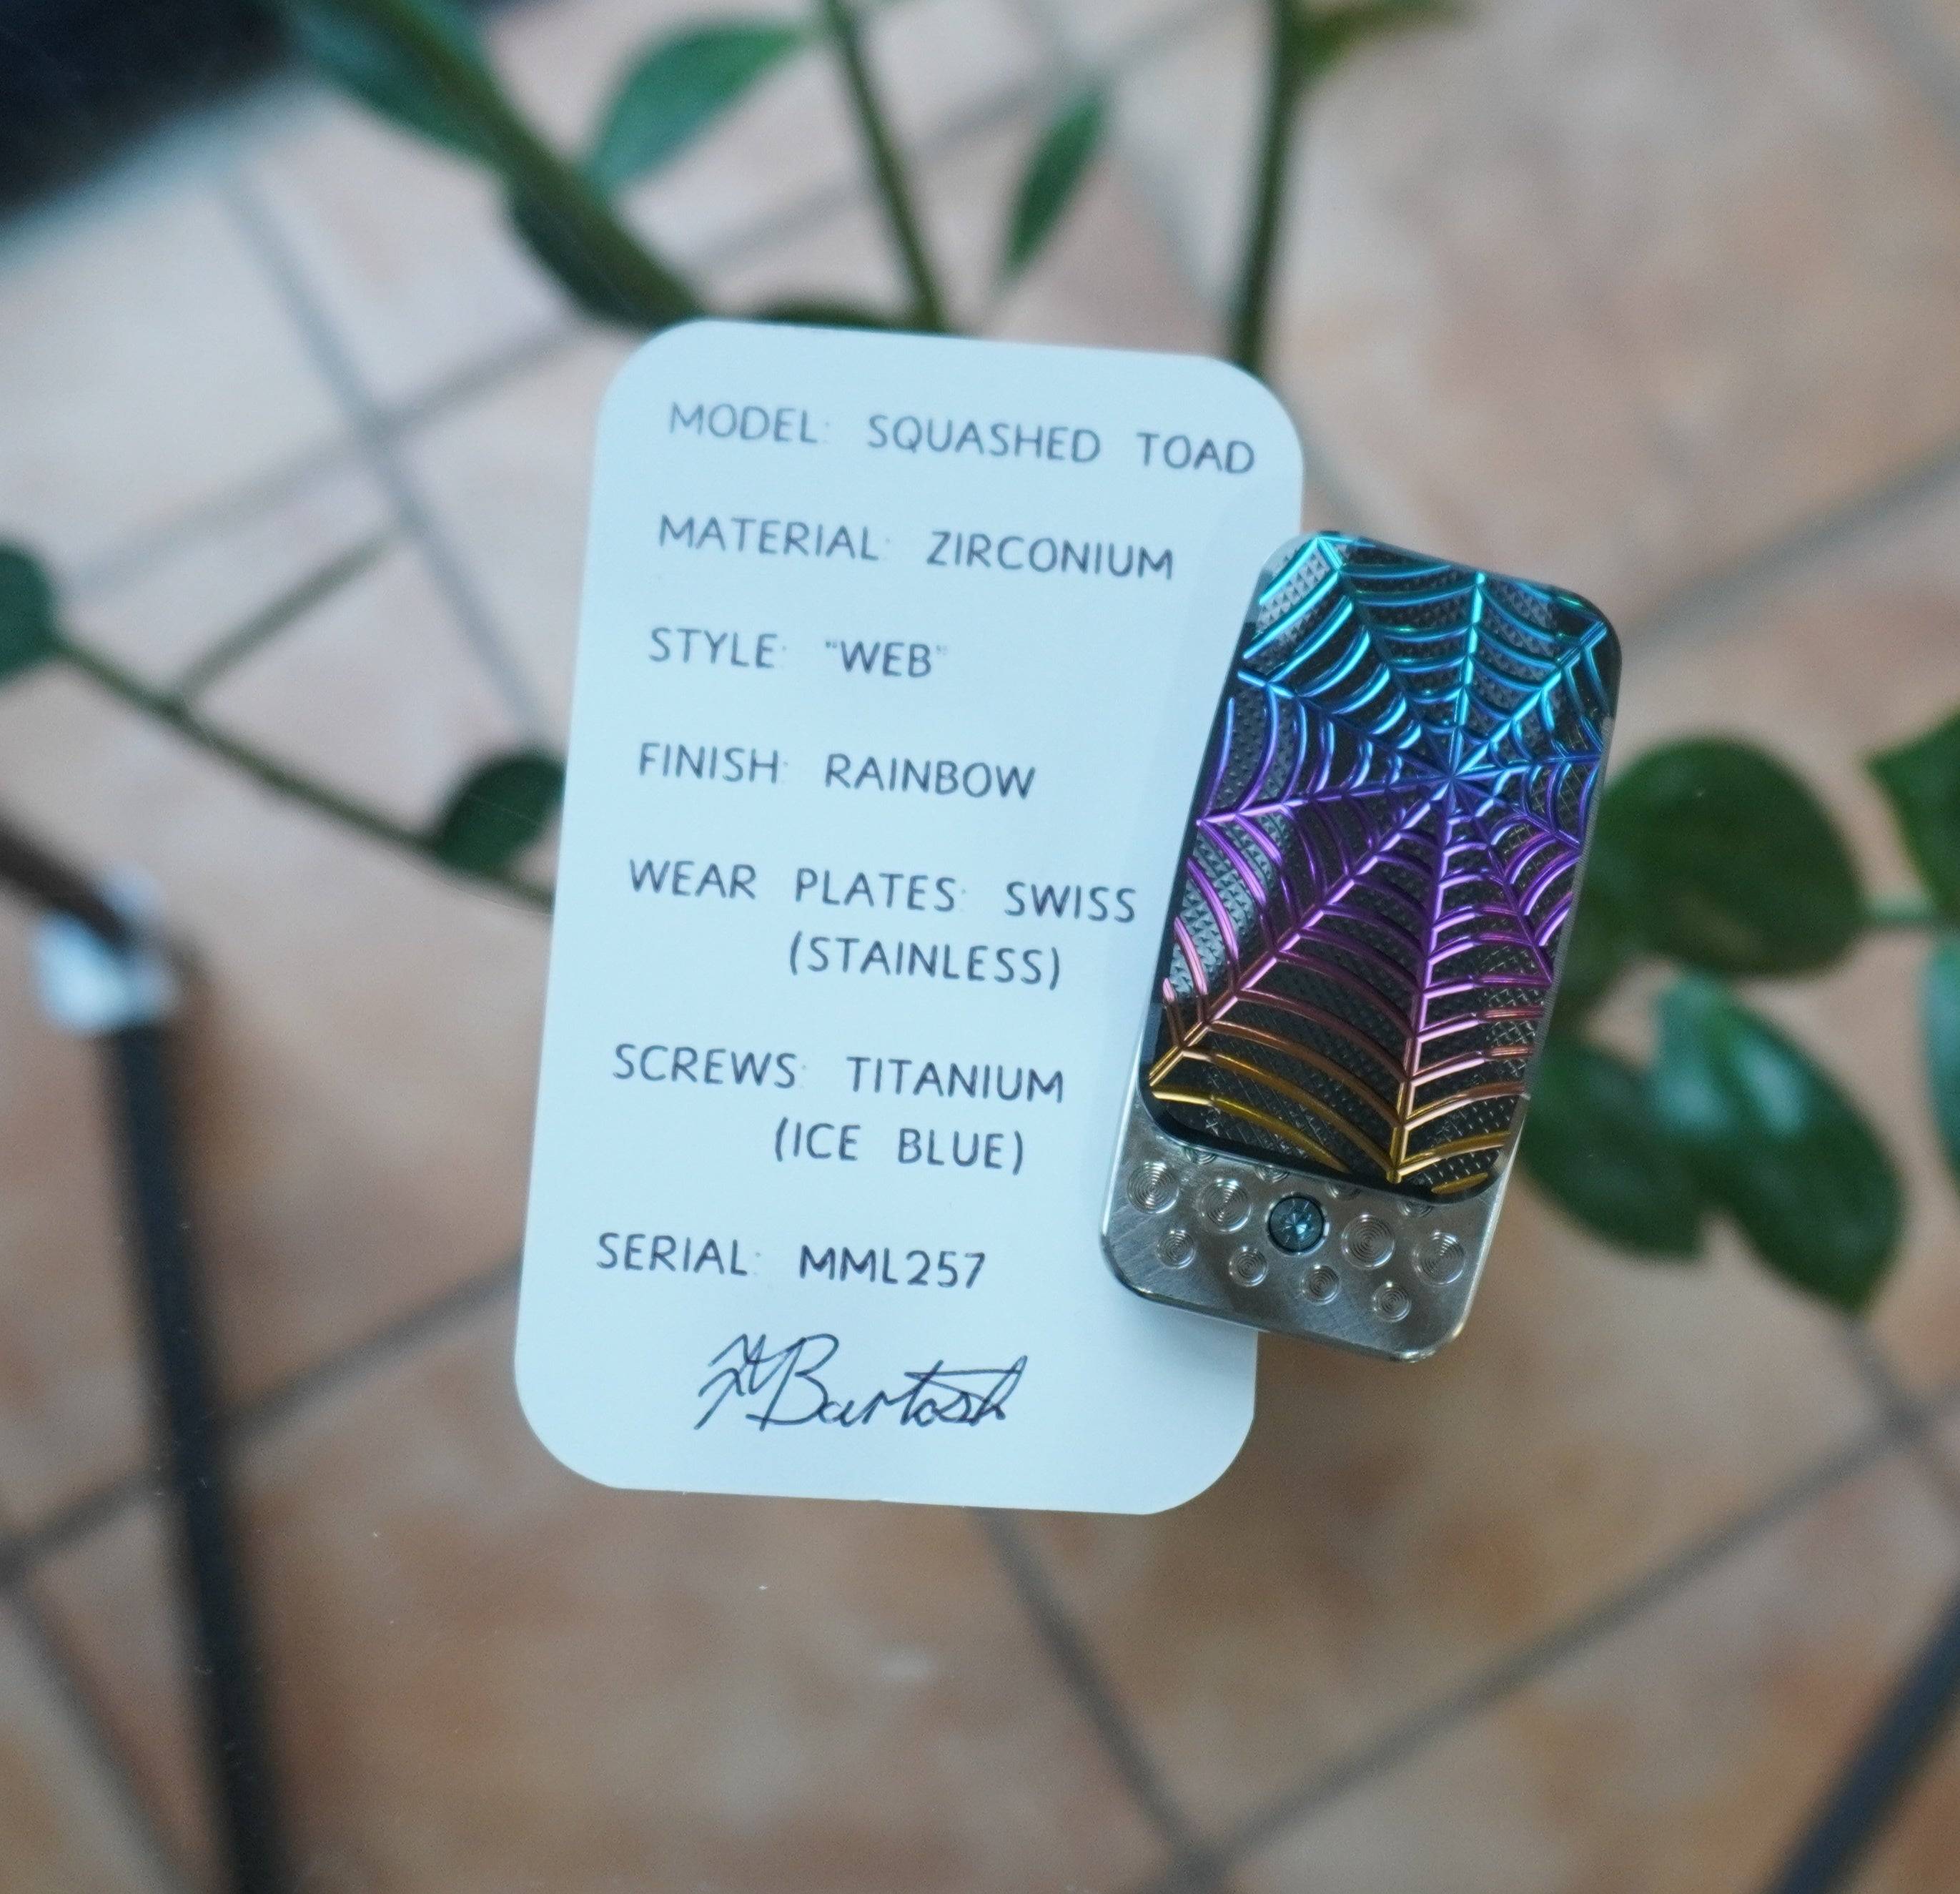 MODEL: SQUASHED TOAD
MATERIAL: ZIRCONIUM
STYLE: "WEB"
FINISH: RAINBOW
WEAR PLATES: SWISS
(STAINLESS)
SCREWS: TITANIUM
(ICE BLUE)
SERIAL: MML257
Bartosh